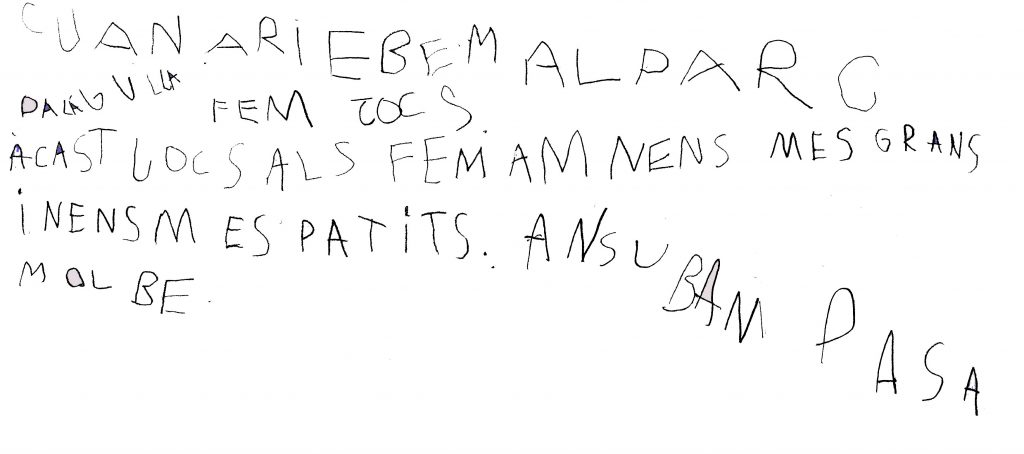 CUAN ARIEBEM ALPARC
DALAGUILLA FEM JOCS.
ACAST JOCS ALS FEM AM NENS MES GRANS
I NENS MES PATITS. ANSU BAM PASA
MOL BE.